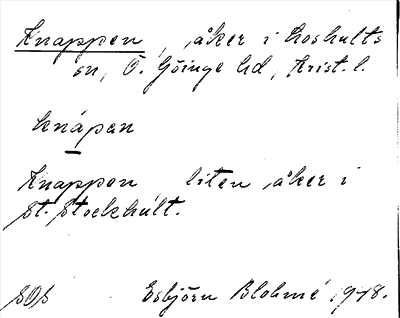 Knappen, åker i Loshults
sn, Ö. Göinge hd, Krist. l.
knápan
Knappen, liten åker i
St. Stockhult.
SOS Esbjörn Blohmé 1948.